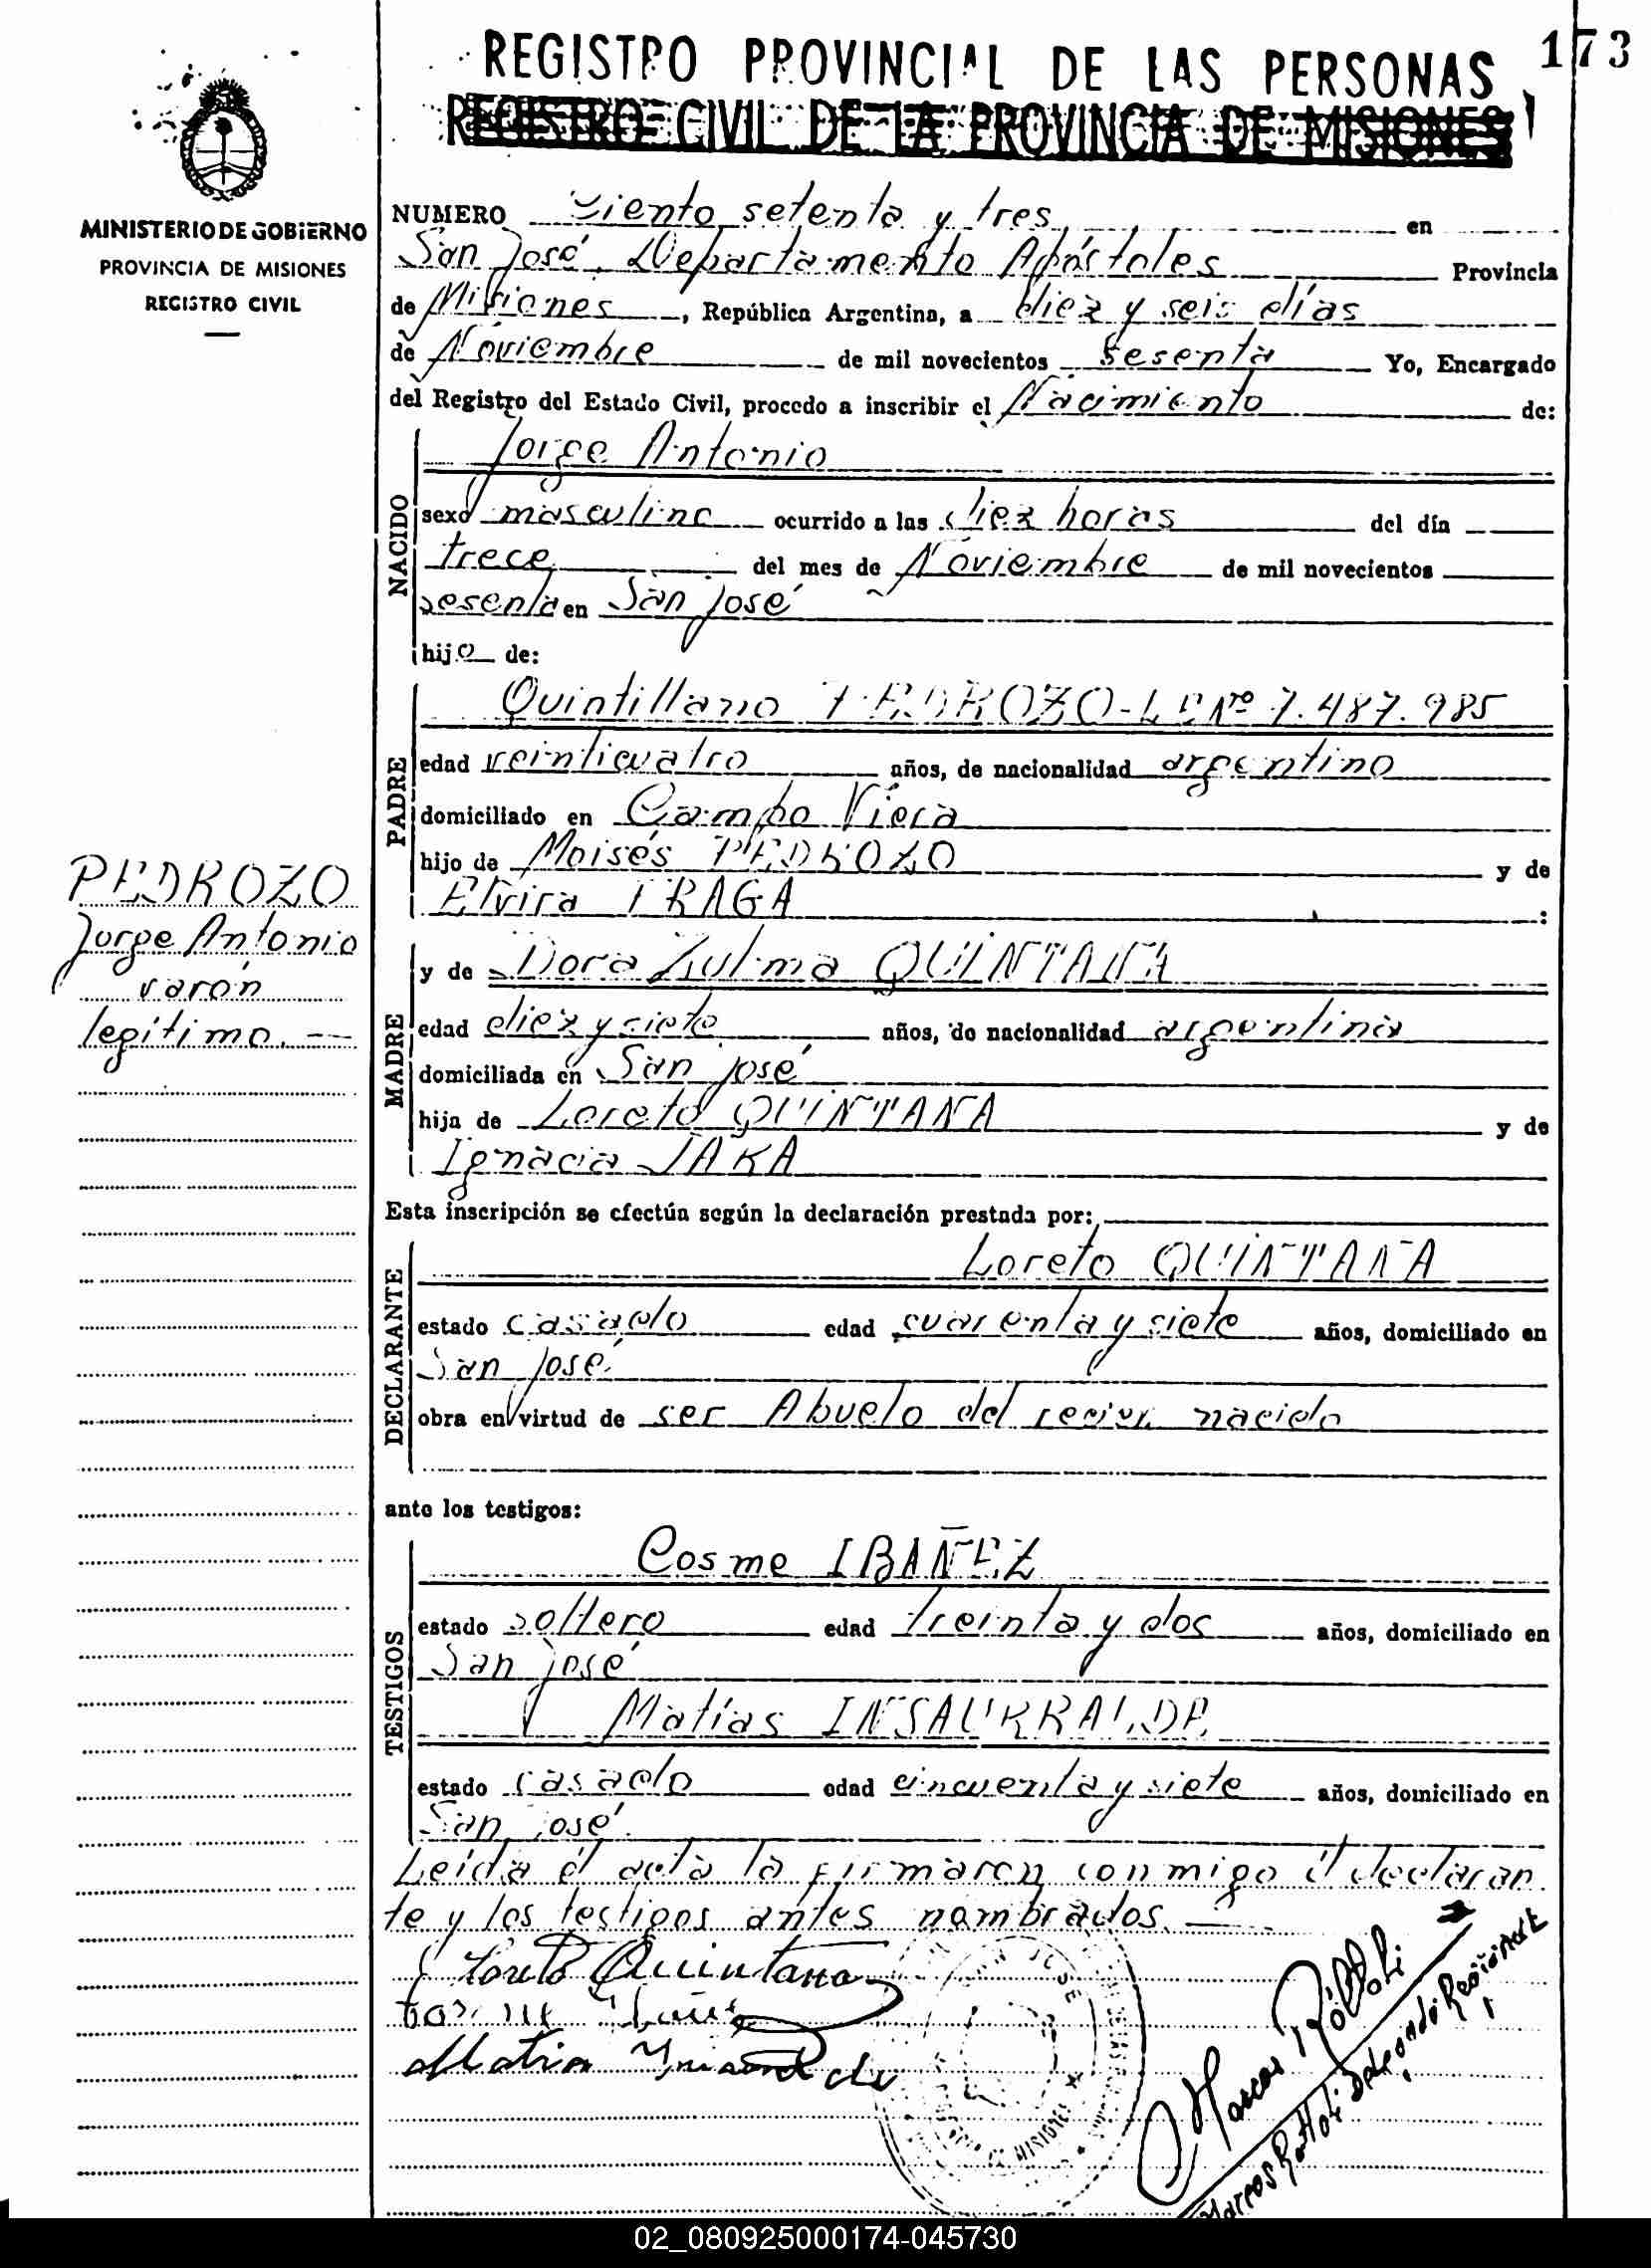 173
REGISTRO PROVINCIAL DE LAS PERSONAS
REGISTRO CIVIL DE LA PROVINCIA DE MISIONES
MINISTERIO DE GOBIERNO
PROVINCIA DE MISIONES
REGISTRO CIVIL
NUMERO Ciento setenta y tres en
San José, Departamento Apóstoles Provincia
de Misiones, República Argentina, a diez y seis días
de Noviembre de mil novecientos sesenta Yo, Encargado
del Registro del Estado Civil, procedo a inscribir el Nacimiento de:
NACIDO
Jorge Antonio
sexo masculino ocurrido a las diez horas del día
trece del mes de Noviembre de mil novecientos
sesenta en San José
hijo de:
PADRE
Quintillano PEDROZO-LE Nº 7.487.985
edad veinticuatro años, de nacionalidad argentino
domiciliado en Campo Viera
hijo de Moisés PEDROZO y de
Elvira FRAGA :
PEDROZO
Jorge Antonio
varón
legítimo. --
MADRE
y de Dora Zulma QUINTANA
edad diez y siete años, de nacionalidad argentina
domiciliada en San José
hija de Loreto QUINTANA y de
Ignacia JARA
Esta inscripción se efectúa según la declaración prestada por:
DECLARANTE
Loreto QUINTANA
estado casado edad cuarenta y siete años, domiciliado en
San José
obra en virtud de ser Abuelo del recien nacido
ante los testigos:
TESTIGOS
Cosme IBAÑEZ
estado soltero edad treinta y dos años, domiciliado en
San José
Matías INSAURRALDE
estado casado edad cincuenta y siete años, domiciliado en
San José.
Leída el acta la firmaron conmigo el declaran
te y los testigos antes nombrados. —
Loreto Quintana
SAN JOSE
MISIONES
Marcos Rottoli
Marcos Rottoli Delegado Regional
02_080925000174-045730